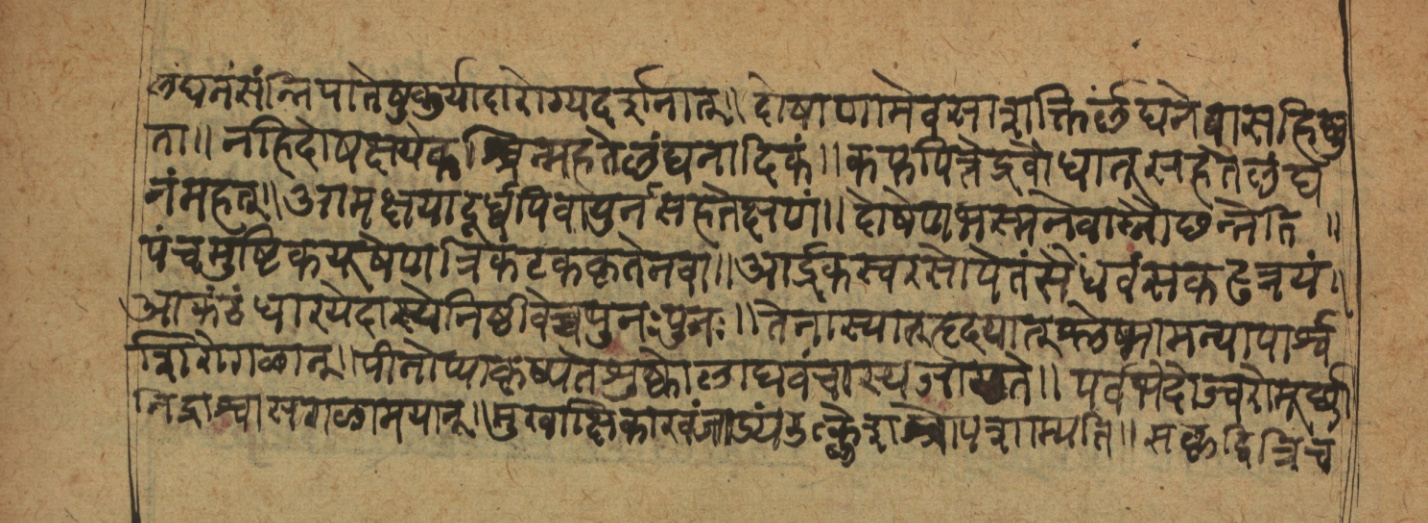 लंघनंसंन्निपातेषुकुर्यादारोग्यदर्शनात्॥ दोषाणामेवसाशक्तिर्लंघनेयासहिष्णु
ता॥ नहिदोषक्षयेकश्चिन्महतेलंघनादिकं॥ कफपित्तेद्रवौधातूसहेतेलंघ
नंमहत्॥ आमक्षयादूर्ध्वमपिवायुर्नसहतेक्षणं॥ दोषेणभस्मनेवाग्नौछन्नेति॥
पंचमुष्टिकयूषेणत्रिकंटककृतेनवा॥ आर्द्रकस्वरसोपेतंसैंधवंसकटुत्रयं।
आकंठंधारयेदास्येनिष्ठीवेच्चपुनःपुनः॥ तेनास्यात्हृदयात्श्लेष्मामन्यापार्श्व
शिरोगळात्॥ पीनोप्याकृष्यतेशुष्कोलाघवंचास्यजायते॥ पर्वभेदोज्वरोमूर्छा
निद्राश्वासगळामयान्॥ मुखाक्षिकारवंजाड्यंउत्क्लेशश्चोपशाम्यति॥ सकृद्द्वित्रिच